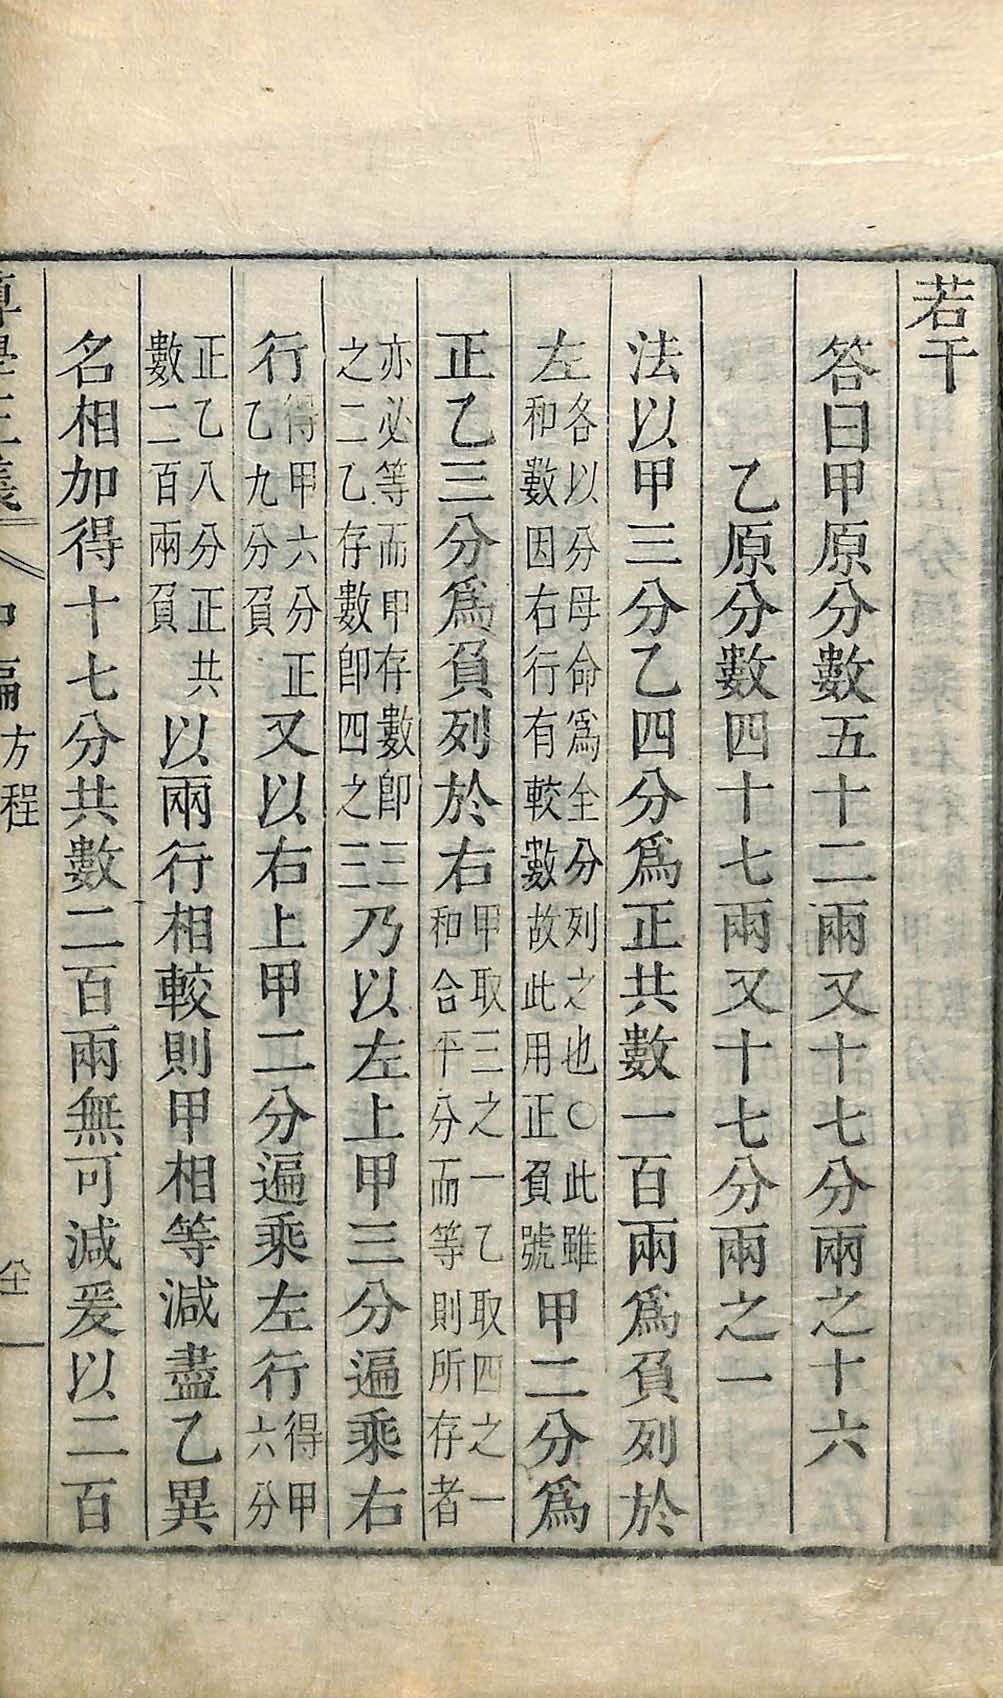 若干
答曰甲原分數五十二兩又十七分兩之十六
乙原分數四十七兩又十七分兩之一
法以甲三分乙四分爲正共數一百兩爲負列於
左各以分母命爲全分列之也○此雖和數因右行有較數故此用正負號甲二分爲
正乙三分爲負列於右甲取三之一乙取四之一和合平分而等則所存者
亦必等而甲存數卽三之二乙存數卽四之三乃以左上甲三分遍乘右
行得甲六分正乙九分負又以右上甲二分遍乘左行得甲六分
正乙八分正共數二百兩負以兩行相較則甲相等減盡乙異
名相加得十七分共數二百兩無可減爰以二百
方程